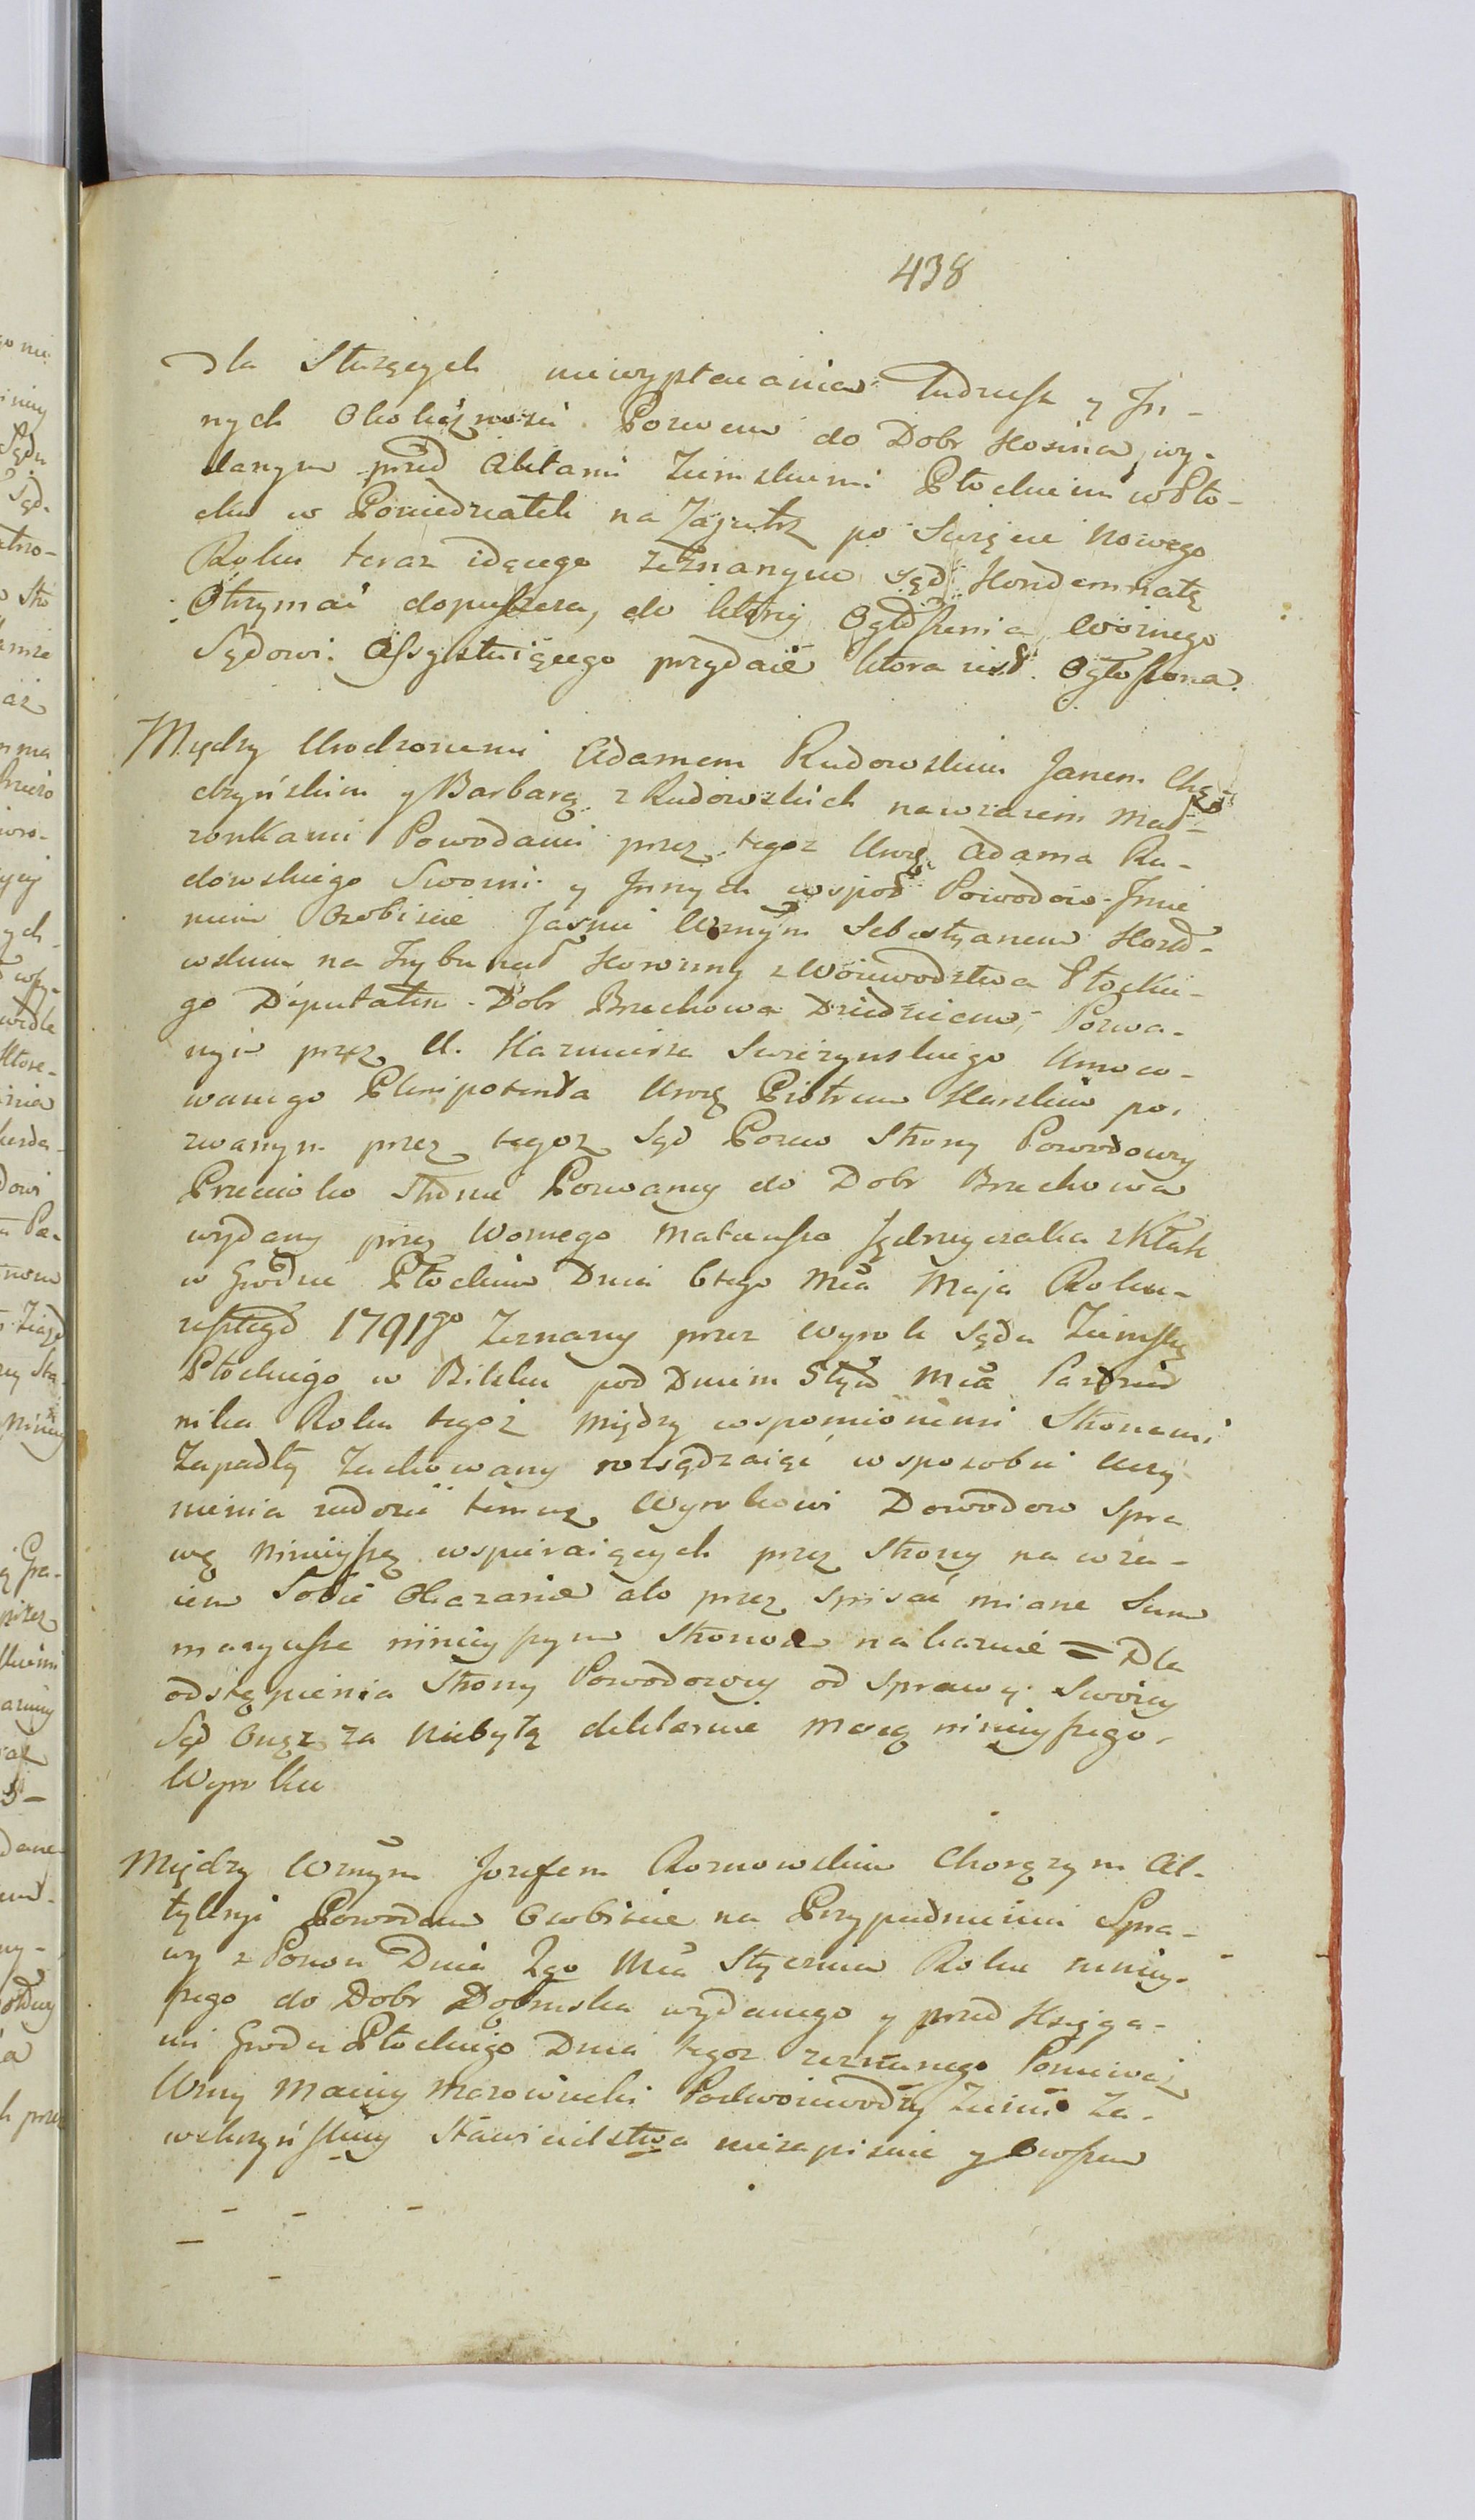 438
Dla Służących niewypłacania tudzież y In-
nych Okoliczności Pozwem do Dobr Kosina, wy-
danym przed Aktami Ziemskiemi Płockiemi w Pło-
cku w Poniedziałek na Zajutrz po Swięcie Nowego
Roku teraz idącego zeznanym, Sąd Kondemnatę
Otrzymać dopuszcza, do ktorey Ogłoszenia Woznego
Sądowi Assystuiącego przydaie ktora iest Ogłoszona.
Między Urodzonemi Adamem Rudowskim Janem Chą-
dzyńskim y Barbarą z Rudowskich nawzaiem Mał-
żonkami Powodami przez tegoż Urgo Adama Ru-
dowskiego Swoim y Innych wspoł Powodow Imie
niem Osobiscie Jasnie Wznym Sebestyanem
wskim na Trybunał Koronny z Woiewodztwa Płockie-
go Deputatem Dobr Bruchowa Dziedzicem, Pozwa-
nym przez U. Kazmierza Swiezynskiego Umoco-
wanego Plenipotenta Urgo Piotrem po-
zwanym przez tegoż Sąd Pozew Strony Powodowey
Przeciwko Stronie Pozwaney do Dobr Bruchowa
wydany przez Woznego Mateusza Jędrzyczaka z
w Grodzie Płockim Dnia 6tego Mca Maja Roku
zeszłego 1791go Zeznany przez Wyrok Sądu Ziemskgo
Płockiego w Bilsku pod Dniem 5tym Mca Pazdzier
nika Roku tegoż między wspomionemi Stronami
Zapadły Zachowany rozsądzaiąc w sposobie Uczy
nienia zadosić temuż Wyrokowi Dowodow Spra
wę Ninieyszą wspieraiących przez Strony na wza-
iem Sobie Okazanie ato przez spisać miane Sum
maryusze ninieyszym Stronom nakazuie = Dla
odstąpienia Strony Powodowey od Sprawy Swoiey
Sąd Onęż za Niebyłą deklaruie mocą ninieyszego
Wyroku
Między Wznym Jozefem Roznowskim Chorążym Al-
tyleryi Powodem Osobiscie na Przypadnieniu Spra-
wy z Pozwu Dnia 2go Mca Stycznia Roku niniey-
szego do Dobr Dąbruska wydanego y przed Księga-
mi Grodu Płockiego Dnia tegoż zeznanego Poniewaz
Wzny Maciey Mazowiecki Podwoiewodzy Ziemi Za-
wskrzyńskiey Stawicielstwa niezapisuie y Owszem